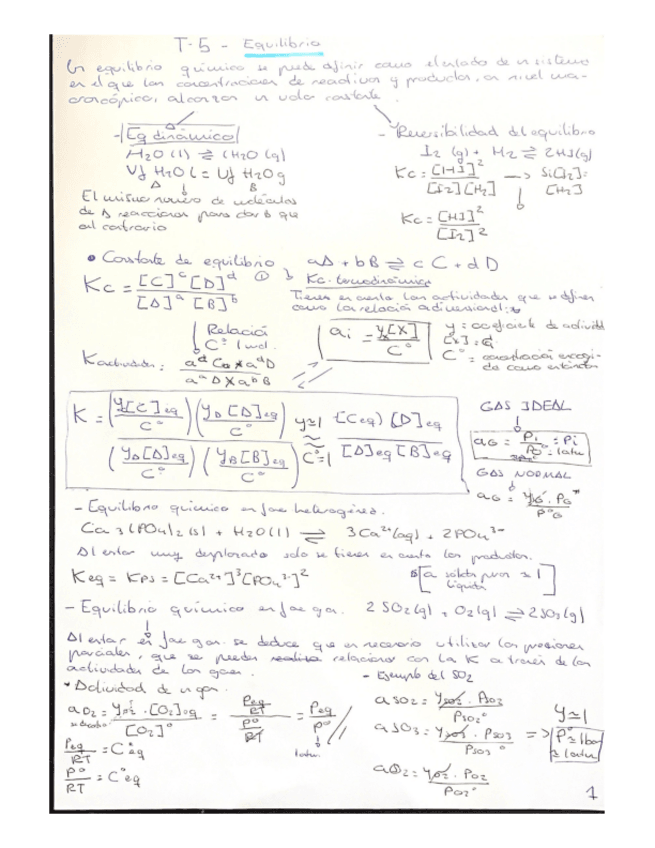 T-5 - Equilibrio
Un equilibrio químico se puede definir como el estado de un sistema
en el que las concentraciones de reactivos y productos, a nivel ma-
croscópico, alcanzan un valor constante.
- Eq dinámico
H2O (l) ⇌ H2O (g)
Vf H2O l = Vf H2O g
A B
El mismo número de moléculas
de A reaccionan para dar B que
al contrario
- Reversibilidad del equilibrio
I2 (g) + H2 ⇌ 2HI(g)
Kc = [HI]^2 / [I2][H2] → Si [I2]=[H2]
Kc = [HI]^2 / [I2]^2
• Constante de equilibrio aA + bB ⇌ cC + dD
Kc = [C]^c [D]^d / [A]^a [B]^b ①
Kc termodinámica
Tienes en cuenta las actividades que se definen
como la relación adimensional:
Relación
C° 1 mol.
ai = γx[X] / C°
γ = coeficiente de actividad
[X] = Ci
C° = concentración escogi-
da como estándar
Kactividades:
K = (γc[C]eq / C°) (γD[D]eq / C°) / (γA[A]eq / C°) (γB[B]eq / C°) γ≈1 C°=1 [Ceq] [D]eq / [A]eq [B]eq
GAS IDEAL
aG = Pi / P° = Pi
= 1atm
GAS NORMAL
aG = γG · PG / P°G
- Equilibrio químico en fase heterogénea.
Ca3(PO4)2(s) + H2O(l) ⇌ 3Ca2+(aq) + 2PO4^3-
Al estar muy desplazado solo se tienen en cuenta los productos.
Keq = KPS = [Ca2+]^3 [PO4^3-]^2
[a sólidos puros ≈ 1
líquidos]
- Equilibrio químico en fase gas. 2SO2(g) + O2(g) ⇌ 2SO3(g)
Al estar en fase gas se deduce que es necesario utilizar las presiones
parciales, que se pueden relacionar con la K a través de las
actividades de los gases.
* Actividad de un gas.
- Ejemplo del SO2
aO2 = γO2 · [O2]eq / [O2]° = (Peq / RT) / (P° / RT) = Peq / P°
1atm.
Peq / RT = C°eq
P° / RT = C°eq
aSO2 = γSO2 · PSO2 / PSO2°
aSO3 = γSO3 · PSO3 / PSO3°
aO2 = γO2 · PO2 / PO2°
γ≈1
=> P°≈1bar
≈1atm
1